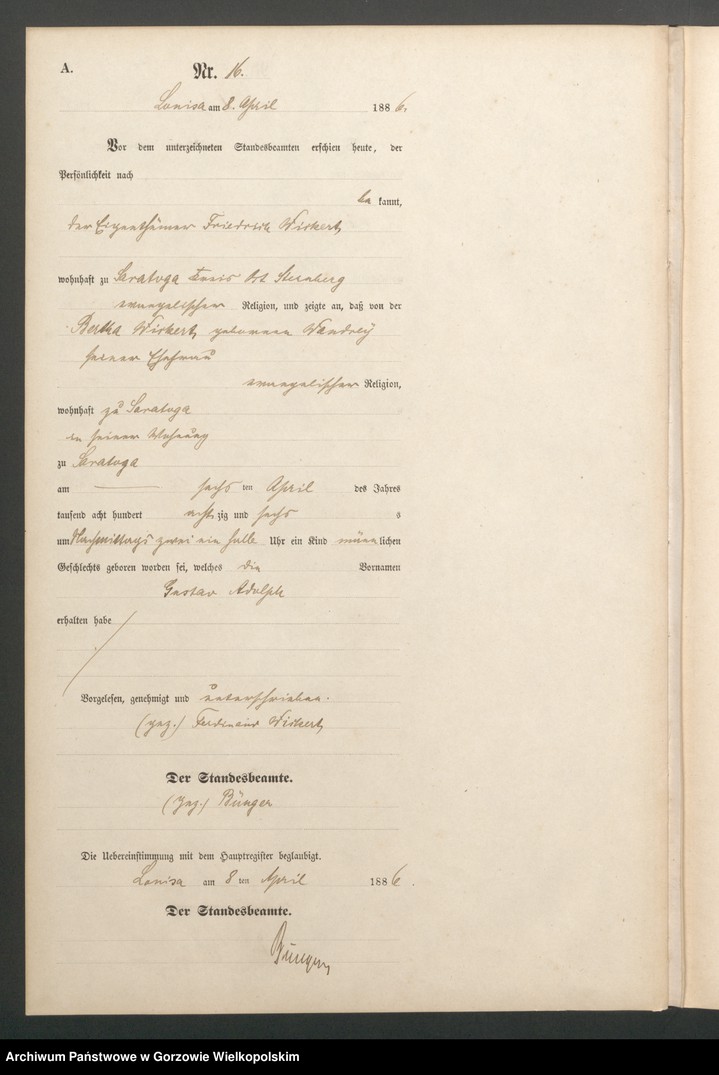 A.
Nr. 16.
Louisa am 8. April 1886.
Vor dem unterzeichneten Standesbeamten erschien heute, der
Persönlichkeit nach
be kannt,
der Eigenthümer Friedrich Wickert,
wohnhaft zu Saratoga Kreis Ost Sternberg
evangelischer Religion, und zeigte an, daß von der
Bertha Wickert, geborenen Wandrey
seiner Ehefrau
evangelischer Religion,
wohnhaft zu Saratoga
in seiner Wohnung
zu Saratoga
am sechs ten April des Jahres
tausend acht hundert acht zig und sechs
um Nachmittags zwei ein halb Uhr ein Kind männlichen
Geschlechts geboren worden sei, welches die Vornamen
Gustav Adolph
erhalten habe
Vorgelesen, genehmigt und unterschrieben.
(gez.) Ferdinand Wickert,
Der Standesbeamte.
(gez.) Bünger
Die Uebereinstimmung mit dem Hauptregister beglaubigt.
Louisa am 8 ten April 1886.
Der Standesbeamte.
Bünger
Archiwum Państwowe w Gorzowie Wielkopolskim